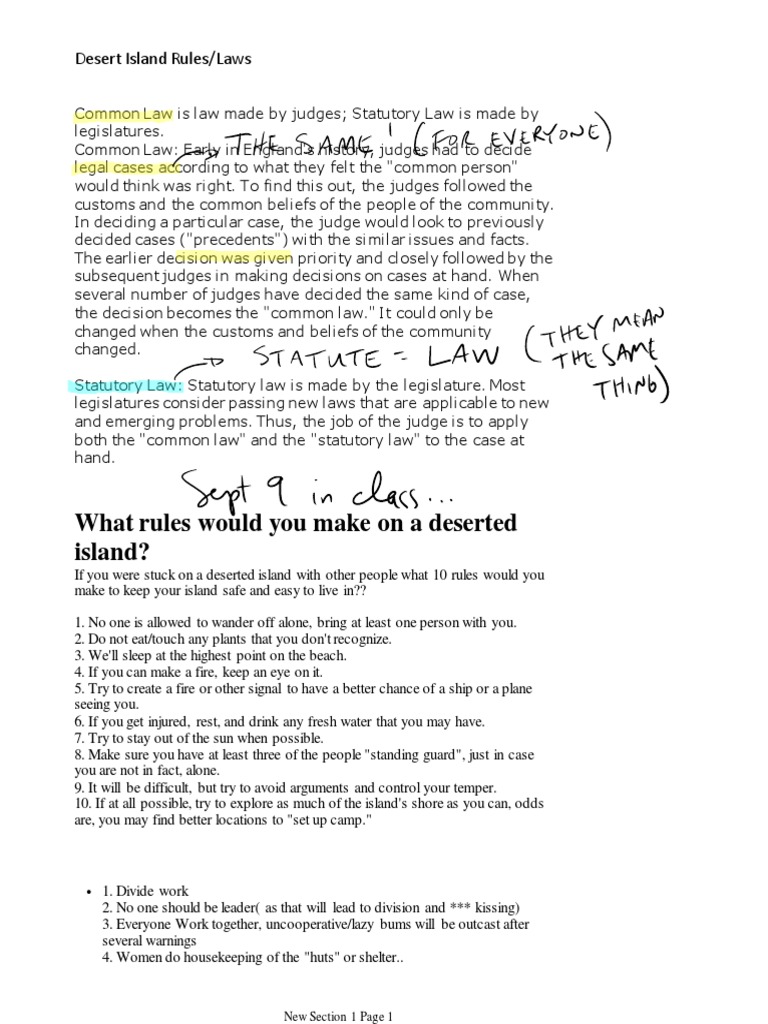 Desert Island Rules/Laws
Common Law is law made by judges; Statutory Law is made by
legislatures.
THE SAME! (FOR EVERYONE)
Common Law: Early in England's history, judges had to decide
legal cases according to what they felt the "common person"
would think was right. To find this out, the judges followed the
customs and the common beliefs of the people of the community.
In deciding a particular case, the judge would look to previously
decided cases ("precedents") with the similar issues and facts.
The earlier decision was given priority and closely followed by the
subsequent judges in making decisions on cases at hand. When
several number of judges have decided the same kind of case,
the decision becomes the "common law." It could only be
changed when the customs and beliefs of the community
changed.
STATUTE = LAW (THEY MEAN
THE SAME
THING)
Statutory Law: Statutory law is made by the legislature. Most
legislatures consider passing new laws that are applicable to new
and emerging problems. Thus, the job of the judge is to apply
both the "common law" and the "statutory law" to the case at
hand.
Sept 9 in class...
What rules would you make on a deserted
island?
If you were stuck on a deserted island with other people what 10 rules would you
make to keep your island safe and easy to live in??
1. No one is allowed to wander off alone, bring at least one person with you.
2. Do not eat/touch any plants that you don't recognize.
3. We'll sleep at the highest point on the beach.
4. If you can make a fire, keep an eye on it.
5. Try to create a fire or other signal to have a better chance of a ship or a plane
seeing you.
6. If you get injured, rest, and drink any fresh water that you may have.
7. Try to stay out of the sun when possible.
8. Make sure you have at least three of the people "standing guard", just in case
you are not in fact, alone.
9. It will be difficult, but try to avoid arguments and control your temper.
10. If at all possible, try to explore as much of the island's shore as you can, odds
are, you may find better locations to "set up camp."
• 1. Divide work
2. No one should be leader( as that will lead to division and *** kissing)
3. Everyone Work together, uncooperative/lazy bums will be outcast after
several warnings
4. Women do housekeeping of the "huts" or shelter..
New Section 1 Page 1